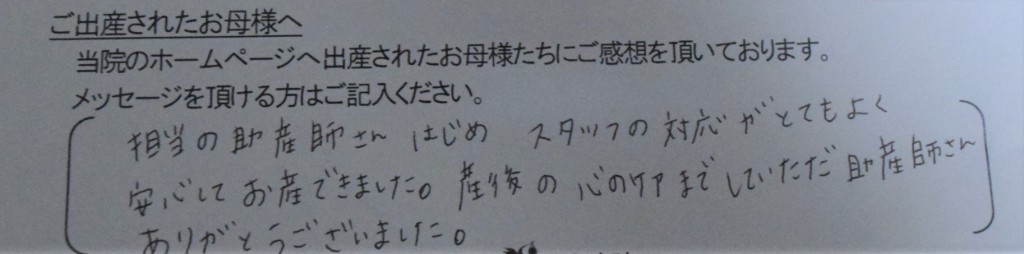 ご出産されたお母様へ
当院のホームページへ出産されたお母様たちにご感想を頂いております。
メッセージを頂ける方はご記入ください。
担当の助産師さん はじめ スタッフの対応がとてもよく
安心してお産できました。産後の心のケアまでしていただだ助産師さん
ありがとうございました。